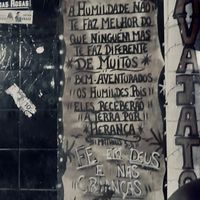 DAS ROSAS
A HUMILDADE NÃO
TE FAZ MELHOR DO
QUE NINGUEM MAS
TE FAZ DIFERENTE
DE MUITOS
BEM-AVENTURADOS
OS HUMILDES POIS
ELES RECEBERÃO
A TERRA POR
HERANÇA
MATHEUS
FÉ EM DEUS
E NAS
CRIANÇAS